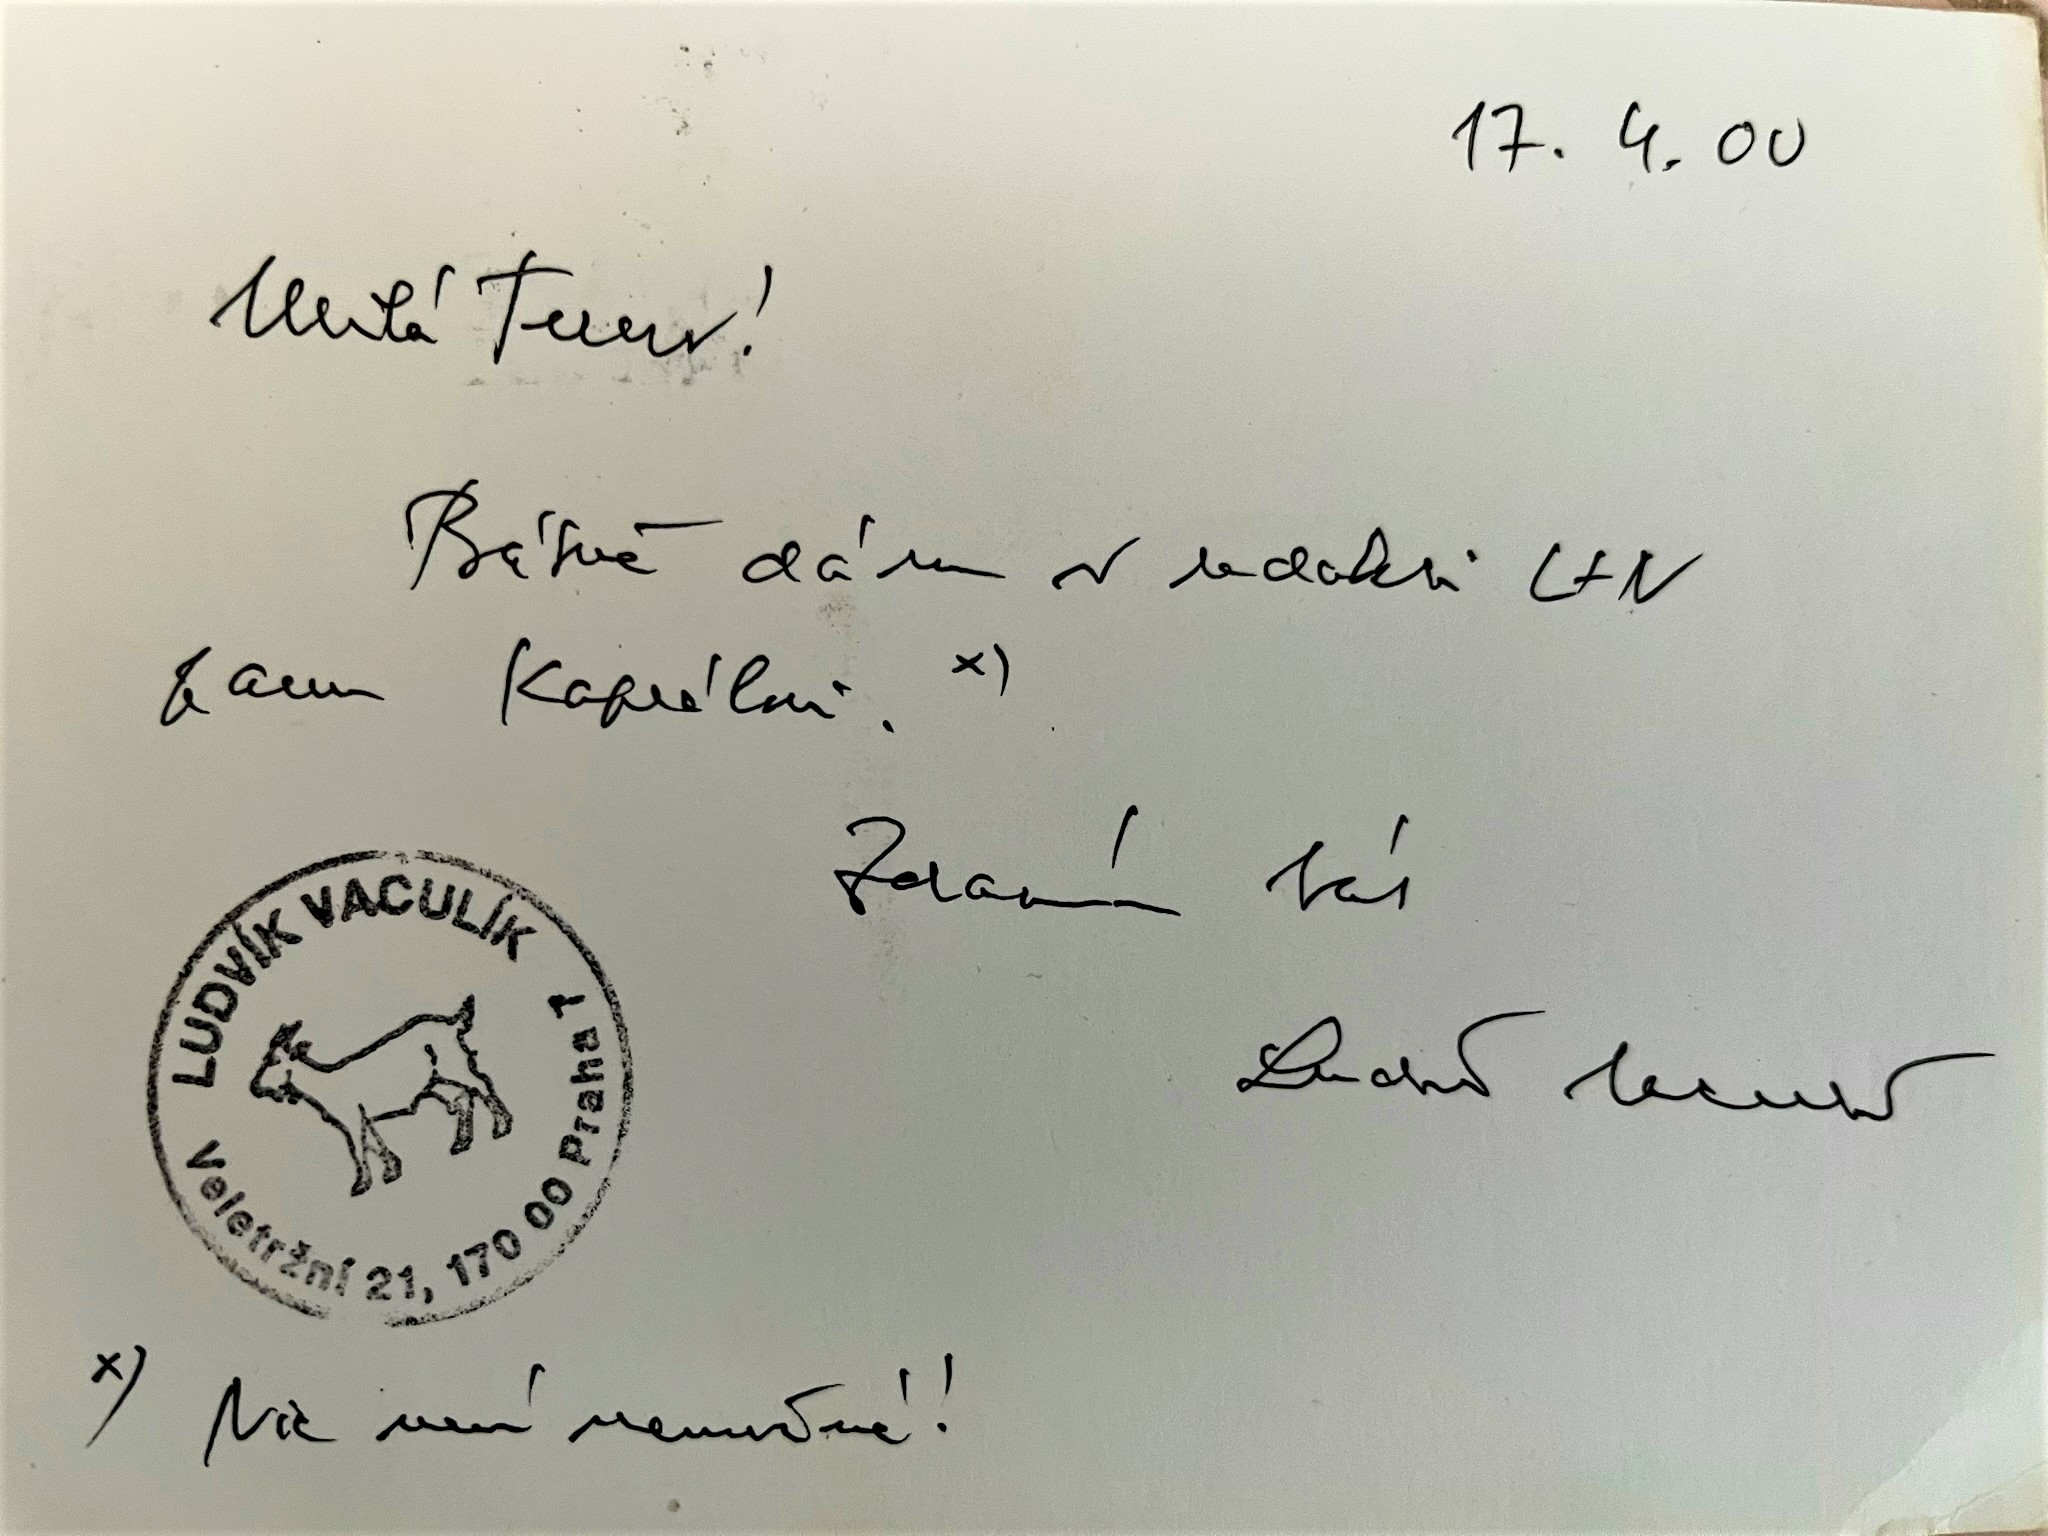 17. 4. 00
Milá !
Básně dám v redakci LtN
panu .x)
Zdravím Vás
Ludvík Vaculík
LUDVÍK VACULÍK
Veletržní 21, 170 00 Praha 7
x) Nic není nemožné!